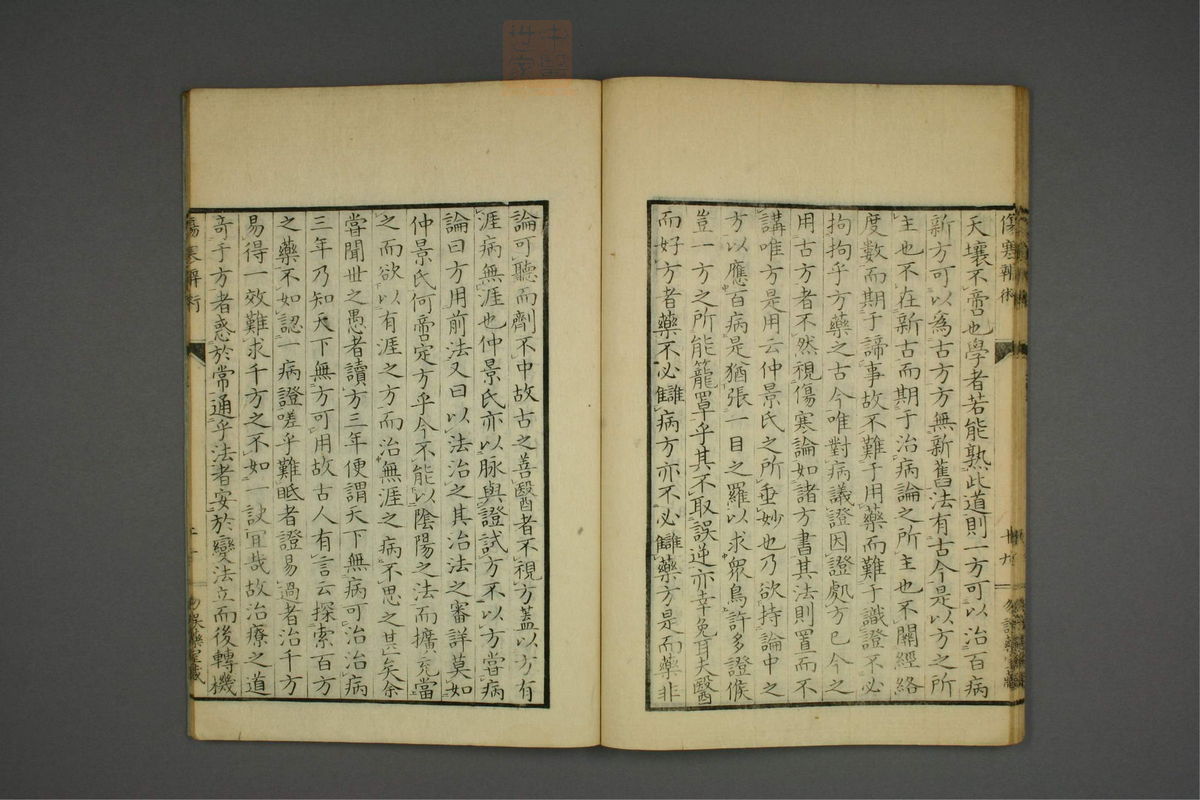 天壤不啻也學者若能熟此道則一方可以治百病
新方可以為古方方無新舊法有古今是以方之所
主也不在新古而期于治病論之所主也不關經絡
度數而期于諦事故不難于用藥而難于識證不必
拘拘乎方藥之古今唯對病議證因證處方已今之
用古方者不然視傷寒論如諸方書其法則置而不
講唯方是用云仲景氏之所垂妙也乃欲持論中之
方以應百病是猶張一目之羅以求眾鳥許多證候
豈一方之所能籠罩乎其不取誤逆亦幸免耳夫醫
而好方者藥不必讎病方亦不必讎藥方是而藥非
論可聽而劑不中故古之善醫者不視方蓋以方有
涯病無涯也仲景氏亦以脉與證試方不以方當病
論曰方用前法又曰以法治之其治法之審詳莫如
仲景氏何啻定方乎今不能以陰陽之法而擴充當
之而欲以有涯之方而治無涯之病不思之甚矣余
嘗聞世之愚者讀方三年便謂天下無病可治治病
三年乃知天下無方可用故古人有言云探索百方
之藥不如認一病證嗟乎難眂者證易過者治千方
易得一效難求千方之不如一訣宜哉故治療之道
奇于方者惑於常通乎法者安於變法立而後轉機
傷寒辨術